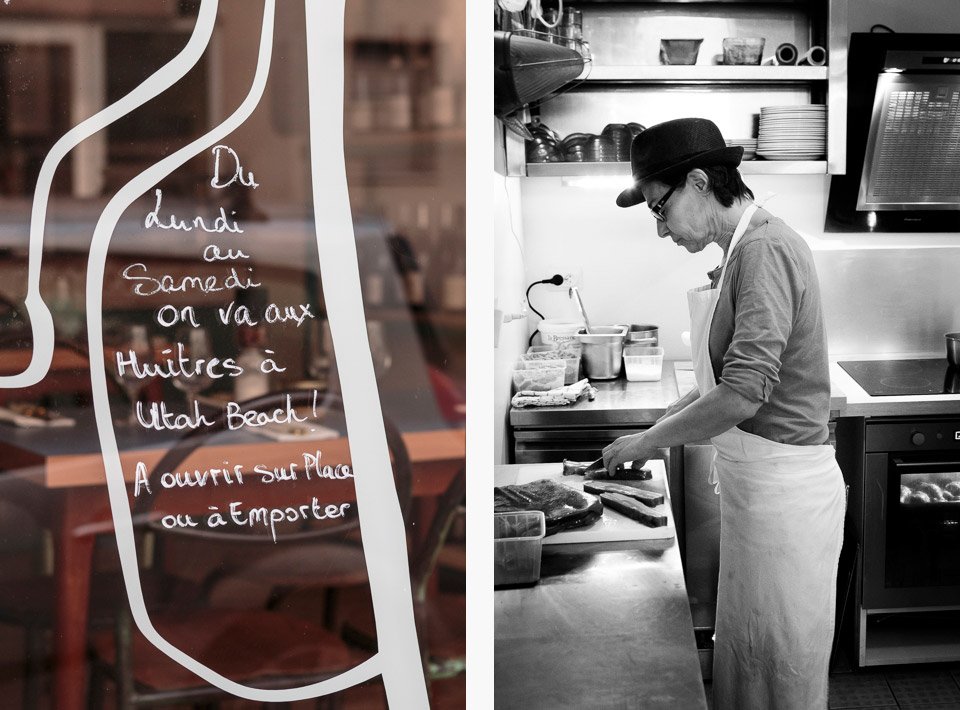 Du
Lundi
au
Samedi
on va aux
Huîtres à
Utah Beach!
A ouvrir sur Place
ou à Emporter